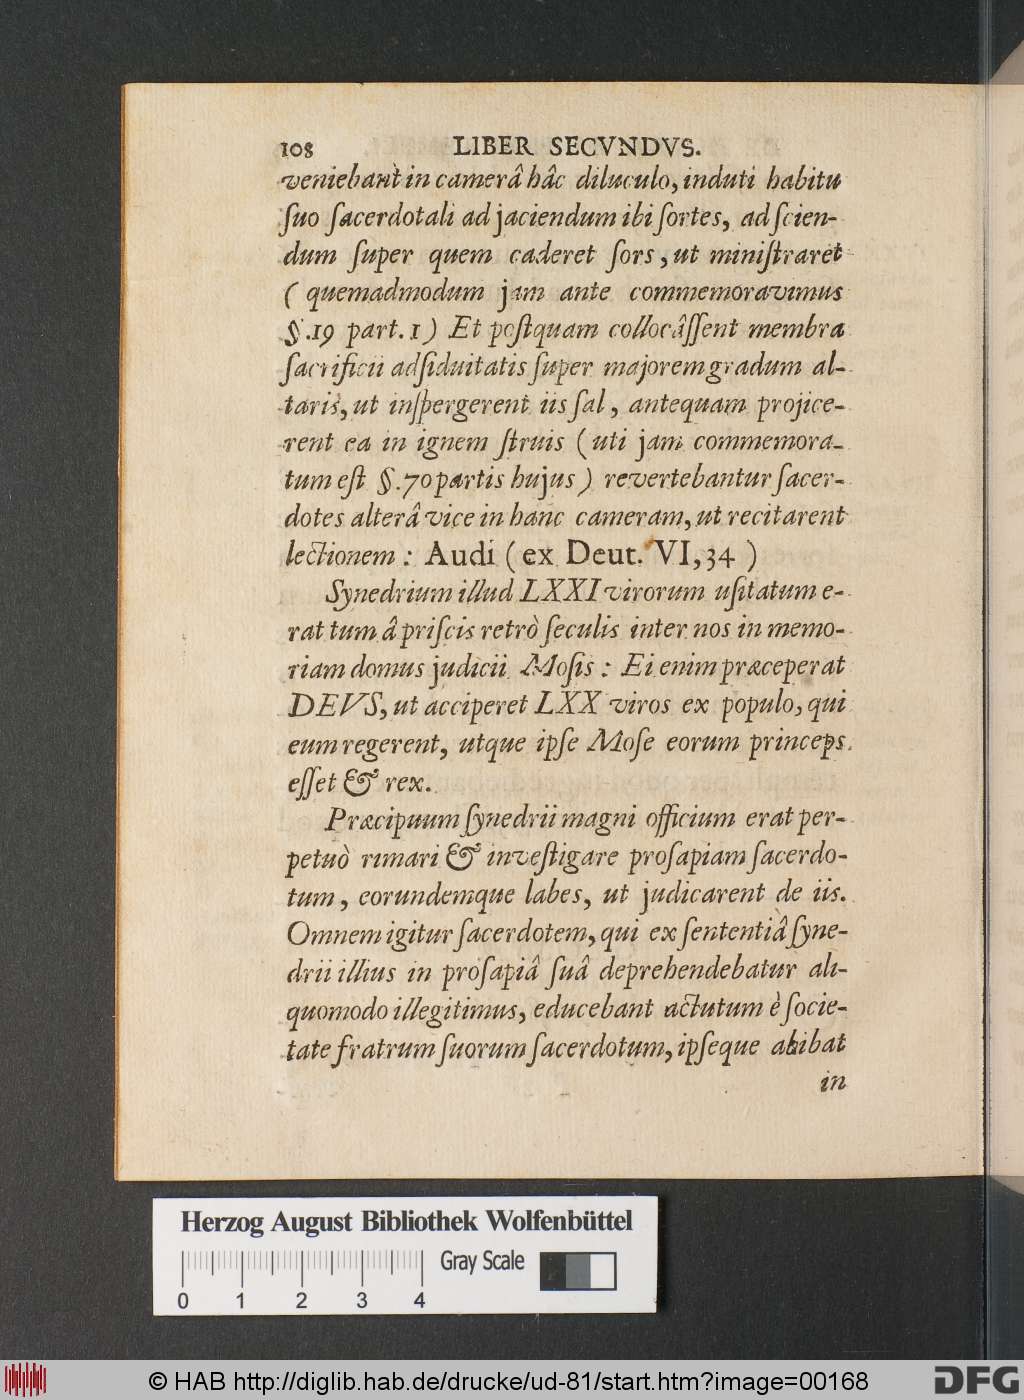 108 LIBER SECVNDVS.
veniebant in camerâ hâc diluculo, induti habitu
ſuo ſacerdotali ad jaciendum ibi ſortes, ad ſcien-
dum ſuper quem caderet ſors, ut miniſtraret
( quemadmodum jam ante commemoravimus
§.19 part. 1 ) Et poſtquam collocâſſent membra
ſacrificii adſiduitatis ſuper majorem gradum al-
taris, ut inſpergerent iis ſal, antequam projice-
rent ea in ignem ſtruis ( uti jam commemora-
tum eſt §.70 partis hujus ) revertebantur ſacer-
dotes alterâ vice in hanc cameram, ut recitarent
lectionem : Audi ( ex Deut. VI, 34 )
Synedrium illud LXXI virorum uſitatum e-
rat tum â priſcis retrò ſeculis inter nos in memo-
riam domus judicii Moſis : Ei enim præceperat
DEVS, ut acciperet LXX viros ex populo, qui
eum regerent, utque ipſe Moſe eorum princeps
eſſet & rex.
Præcipuum ſynedrii magni officium erat per-
petuò rimari & inveſtigare proſapiam ſacerdo-
tum, eorundemque labes, ut judicarent de iis.
Omnem igitur ſacerdotem, qui ex ſententiâ ſyne-
drii illius in proſapiâ ſuâ deprehendebatur ali-
quomodo illegitimus, educebant actutum è ſocie-
tate fratrum ſuorum ſacerdotum, ipſeque abibat
in
Herzog August Bibliothek Wolfenbüttel
Gray Scale
0 1 2 3 4
© HAB http://diglib.hab.de/drucke/ud-81/start.htm?image=00168
DFG